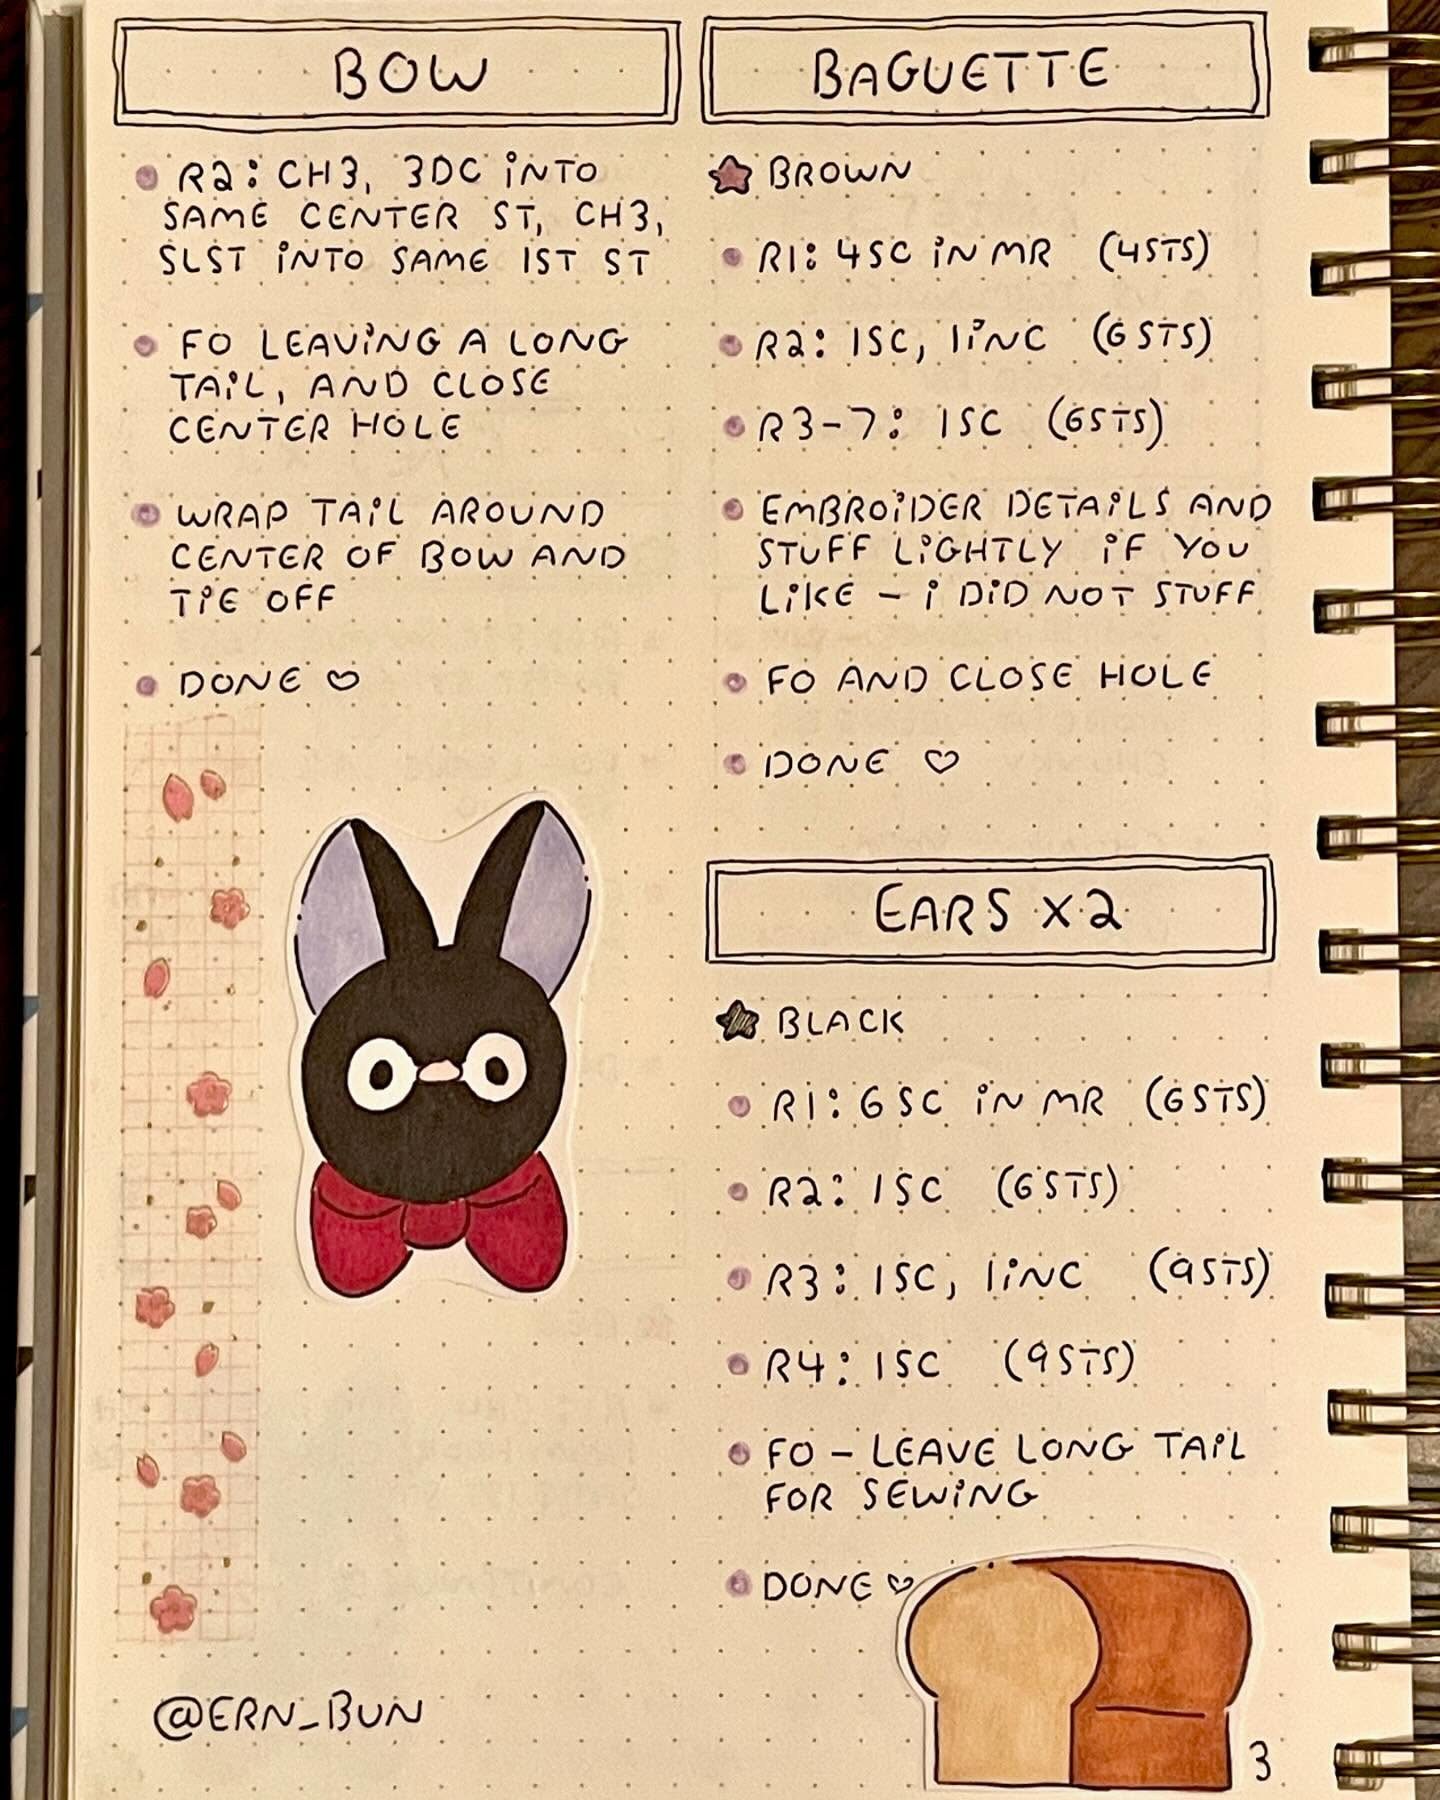 BOW
R2: CH3, 3DC iNTO
SAME CENTER ST, CH3,
SLST iNTO SAME 1ST ST
FO LEAViNG A LONG
TAiL, AND CLOSE
CENTER HOLE
WRAP TAiL AROUND
CENTER OF BOW AND
TiE OFF
DONE ♡
@ERN_BUN
BAGUETTE
BROWN
R1: 4SC iN MR (4STS)
R2: 1SC, 1iNC (6STS)
R3-7: 1SC (6STS)
EMBROiDER DETAiLS AND
STUFF LiGHTLY iF YOU
LiKE - i DiD NOT STUFF
FO AND CLOSE HOLE
DONE ♡
EARS X2
BLACK
R1: 6SC iN MR (6STS)
R2: 1SC (6STS)
R3: 1SC, 1iNC (9STS)
R4: 1SC (9STS)
FO - LEAVE LONG TAiL
FOR SEWiNG
DONE ♡
3